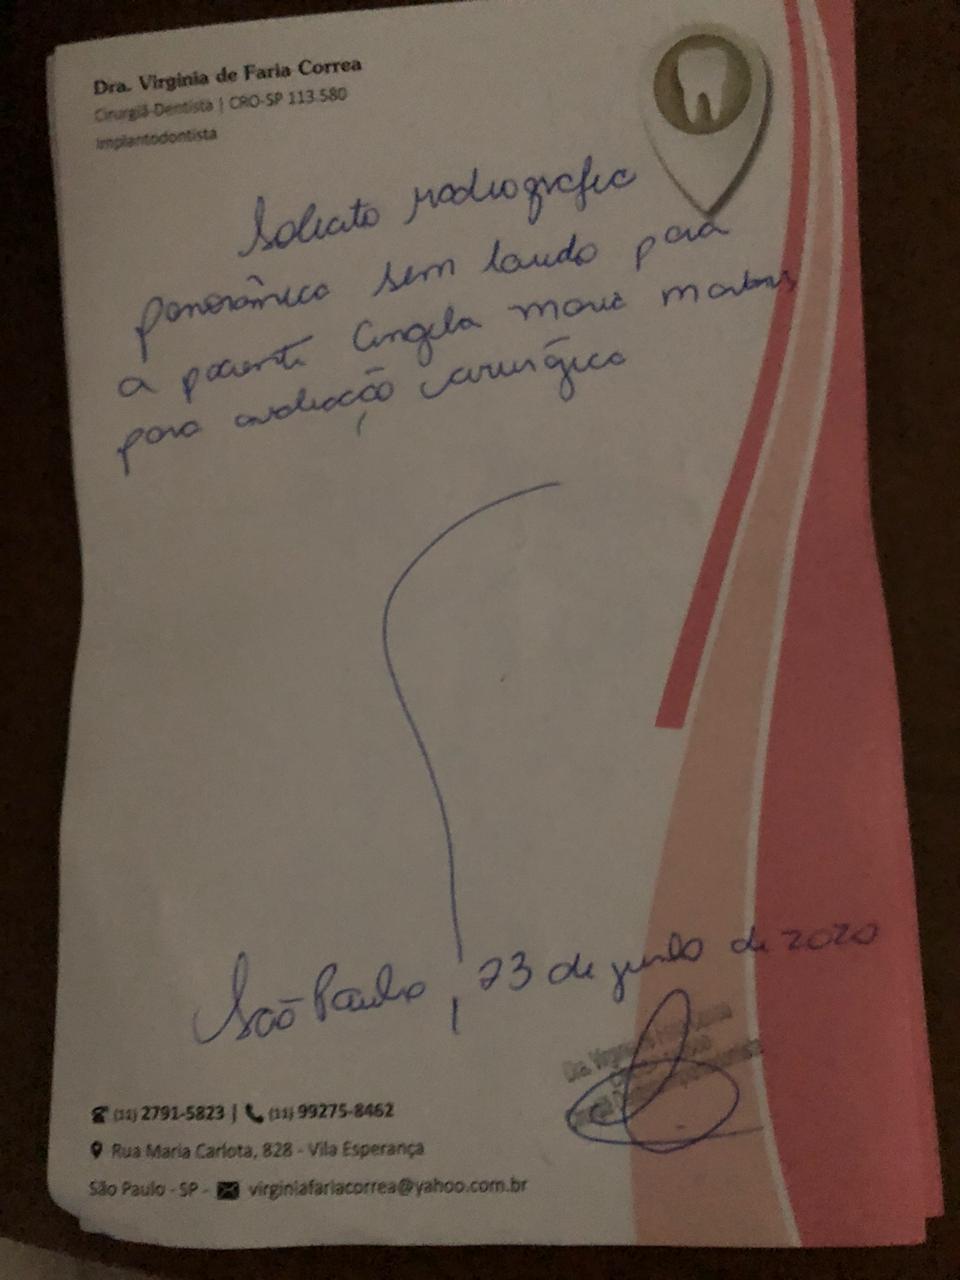 Dra. Virginia de Faria Correa
Cirurgiã-Dentista | CRO-SP 113.580
Implantodontista
Solicito radiografia
panorâmica sem laudo para
a paciente Angela Maria Martins
para avaliação cirúrgica
São Paulo, 23 de junho de 2020
Dra. Virginia
(11) 2791-5823 | (11) 99275-8462
Rua Maria Carlota, 828 - Vila Esperança
São Paulo - SP - virginiafariacorrea@yahoo.com.br